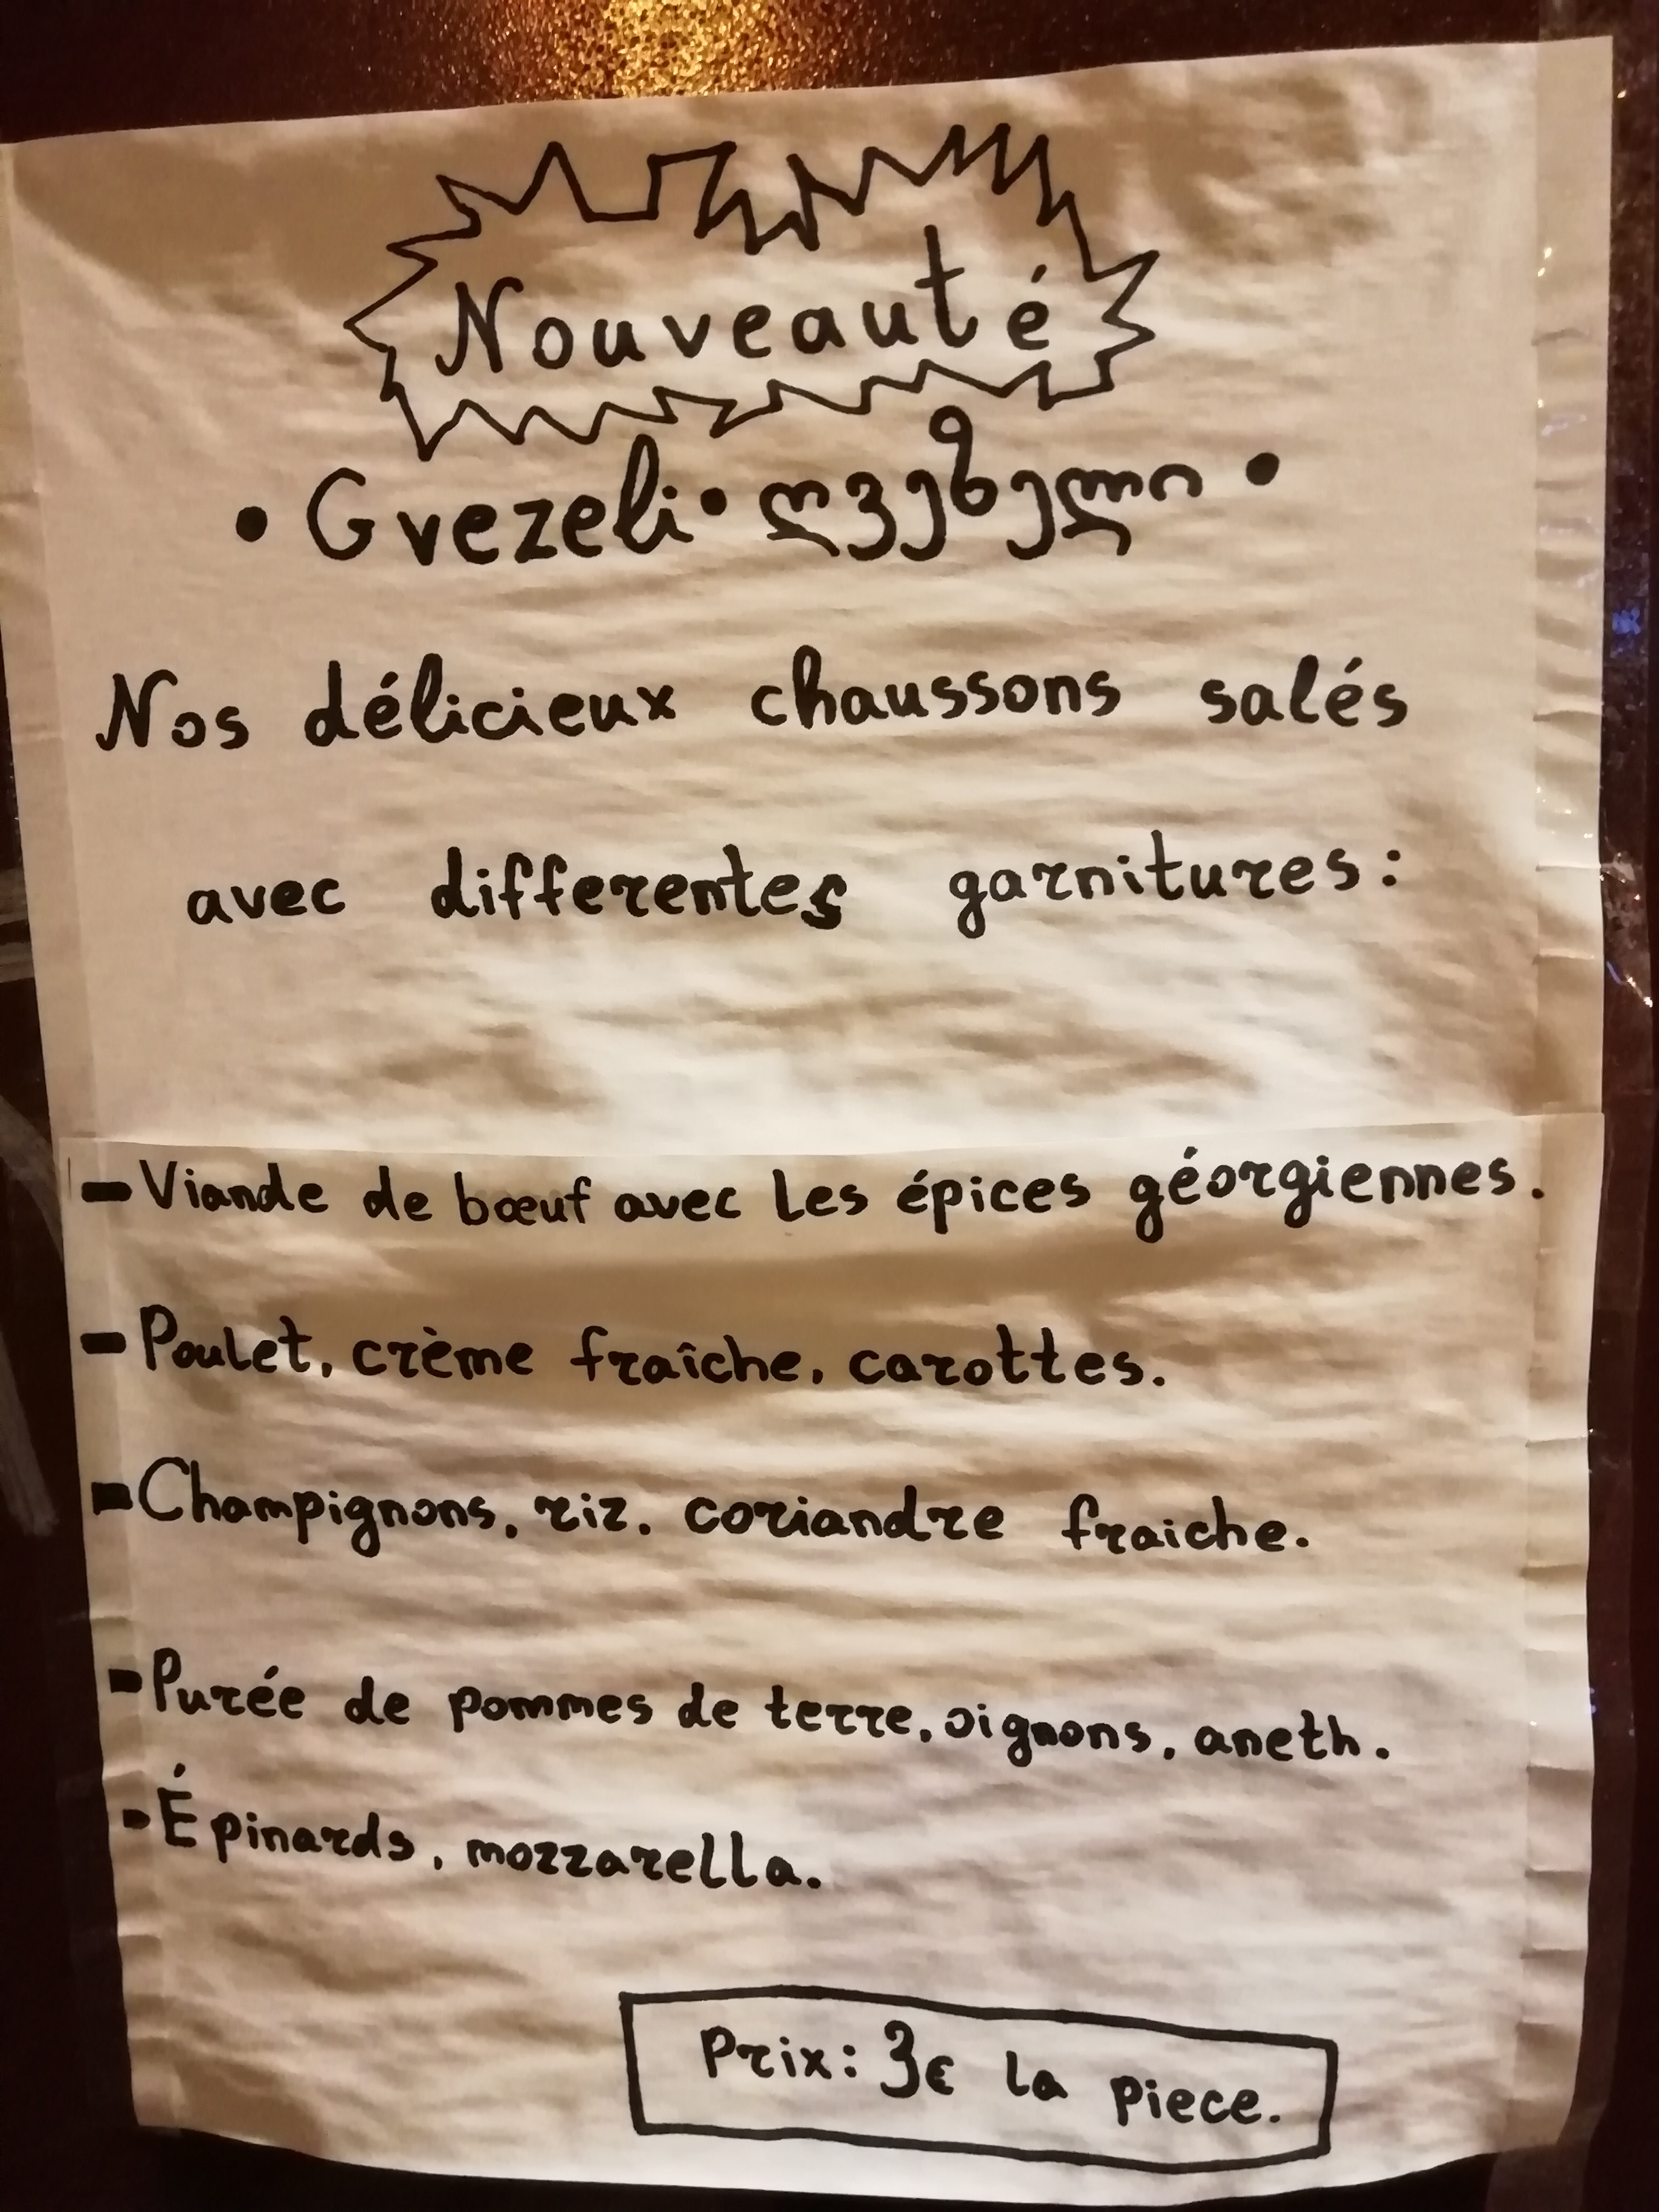 Nouveauté
• Gvezeli • ღვეზელი •
Nos délicieux chaussons salés
avec differentes garnitures :
- Viande de bœuf avec les épices géorgiennes.
- Poulet, crème fraîche, carottes.
- Champignons, riz, coriandre fraiche.
- Purée de pommes de terre, oignons, aneth.
- Épinards, mozzarella.
Prix : 3€ la piece.